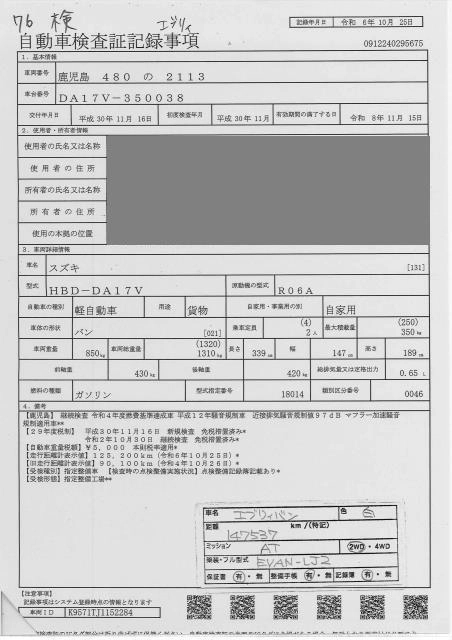 76 検 エブリィ
記録年月日 令和 6年10月 25日
自動車検査証記録事項 0912240295675
1．基本情報
車両番号 鹿児島 480 の 2113
車台番号 DA17V－350038
交付年月日 平成 30年11月 16日 初度検査年月 平成 30年 11月 有効期間の満了する日 令和 8年11月 15日
2．使用者・所有者情報
使用者の氏名又は名称
使用者の住所
所有者の氏名又は名称
所有者の住所
使用の本拠の位置
3．車両詳細情報
車名 スズキ [131]
型式 HBD－DA17V 原動機の型式 R06A
自動車の種別 軽自動車 用途 貨物 自家用・事業用の別 自家用
車体の形状 バン [021] 乗車定員 (4) 2人 最大積載量 (250) 350kg
車両重量 850kg 車両総重量 (1320) 1310kg 長さ 339cm 幅 147cm 高さ 189cm
前軸重 430kg 後軸重 420kg 総排気量又は定格出力 0.65 L
燃料の種類 ガソリン 型式指定番号 18014 類別区分番号 0046
4．備考
【鹿児島】 継続検査 令和４年度燃費基準達成車 平成１２年騒音規制車 近接排気騒音規制値９７ｄＢ マフラー加速騒音
規制適用車**
【２９年度税制】 平成３０年１１月１６日 新規検査 免税措置済み*
令和２年１０月３０日 継続検査 免税措置済み*
【自動車重量税額】￥５，０００ 本則税率適用*
【走行距離計表示値】１２５，２００ｋｍ（令和６年１０月２５日）*
【旧走行距離計表示値】９０，１００ｋｍ（令和４年１０月２６日）*
【受検種別】指定整備車 【検査時の点検整備実施状況】点検整備記録簿記載あり*
【受検形態】指定整備工場**
車名 エブリィバン 色 白
距離 147537 km／(特記)
ミッション AT 2WD・4WD
架装・フル型式 EVAN-LJ2
保証書 有・無 整備手帳 有・無 記録簿 有・無
【注意事項】
記録事項はシステム登録時点の情報となります
車両ＩＤ K9571TJ1152284